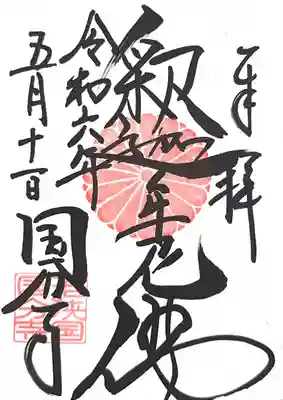 奉拝
釈迦牟尼佛
令和六年
五月十一日
国分寺